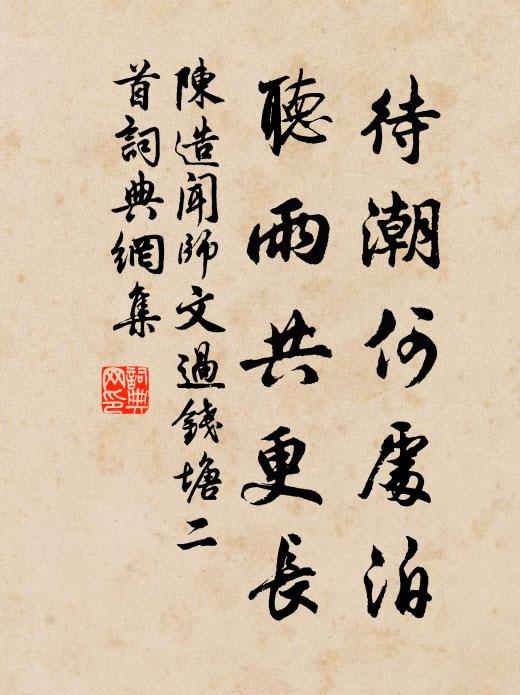 待潮何處泊
聽雨共更長
陳造聞師文過錢塘二
首詞典網集
詞典网印